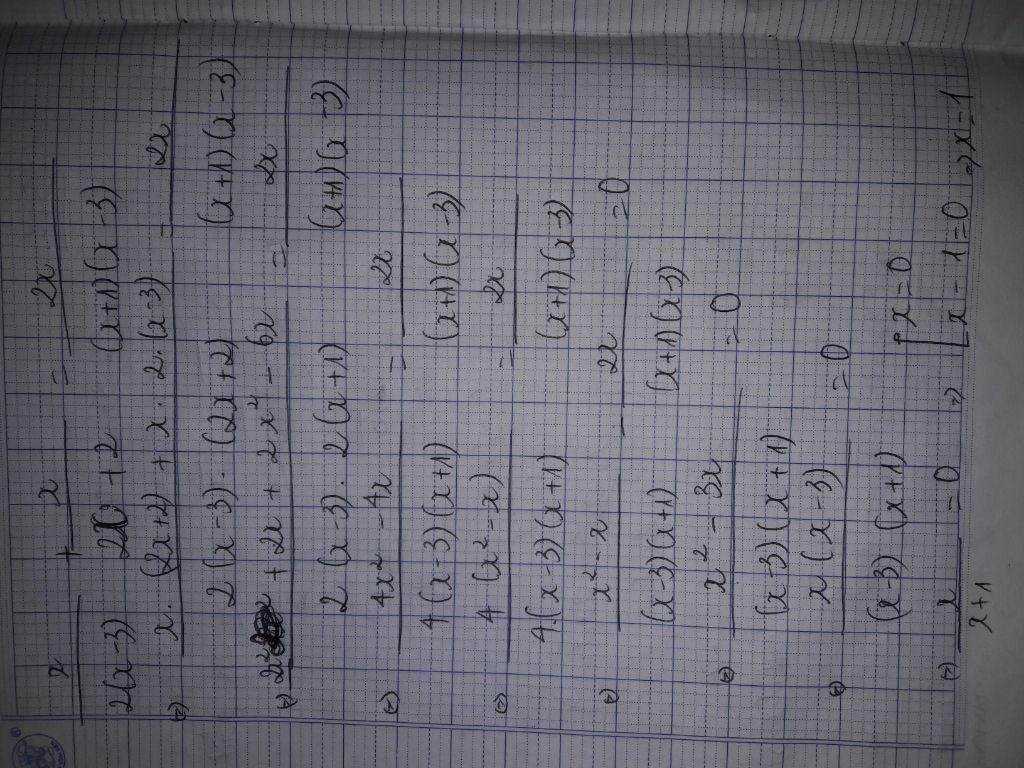 x/(2(x-3)) + x/(2x+2) = 2x/((x+1)(x-3))
⇔ (x.(2x+2) + x.2.(x-3))/(2(x-3).(2x+2)) = 2x/((x+1)(x-3))
⇔ (2x² + 2x + 2x² - 6x)/(2(x-3).2(x+1)) = 2x/((x+1)(x-3))
⇔ (4x² - 4x)/(4(x-3)(x+1)) = 2x/((x+1)(x-3))
⇔ (4(x²-x))/(4.(x-3)(x+1)) = 2x/((x+1)(x-3))
⇔ (x²-x)/((x-3)(x+1)) - 2x/((x+1)(x-3)) = 0
⇔ (x² - 3x)/((x-3)(x+1)) = 0
⇔ (x(x-3))/((x-3)(x+1)) = 0
⇔ x/(x+1) = 0 ⇒ [x = 0
[x - 1 = 0 ⇒ x = 1